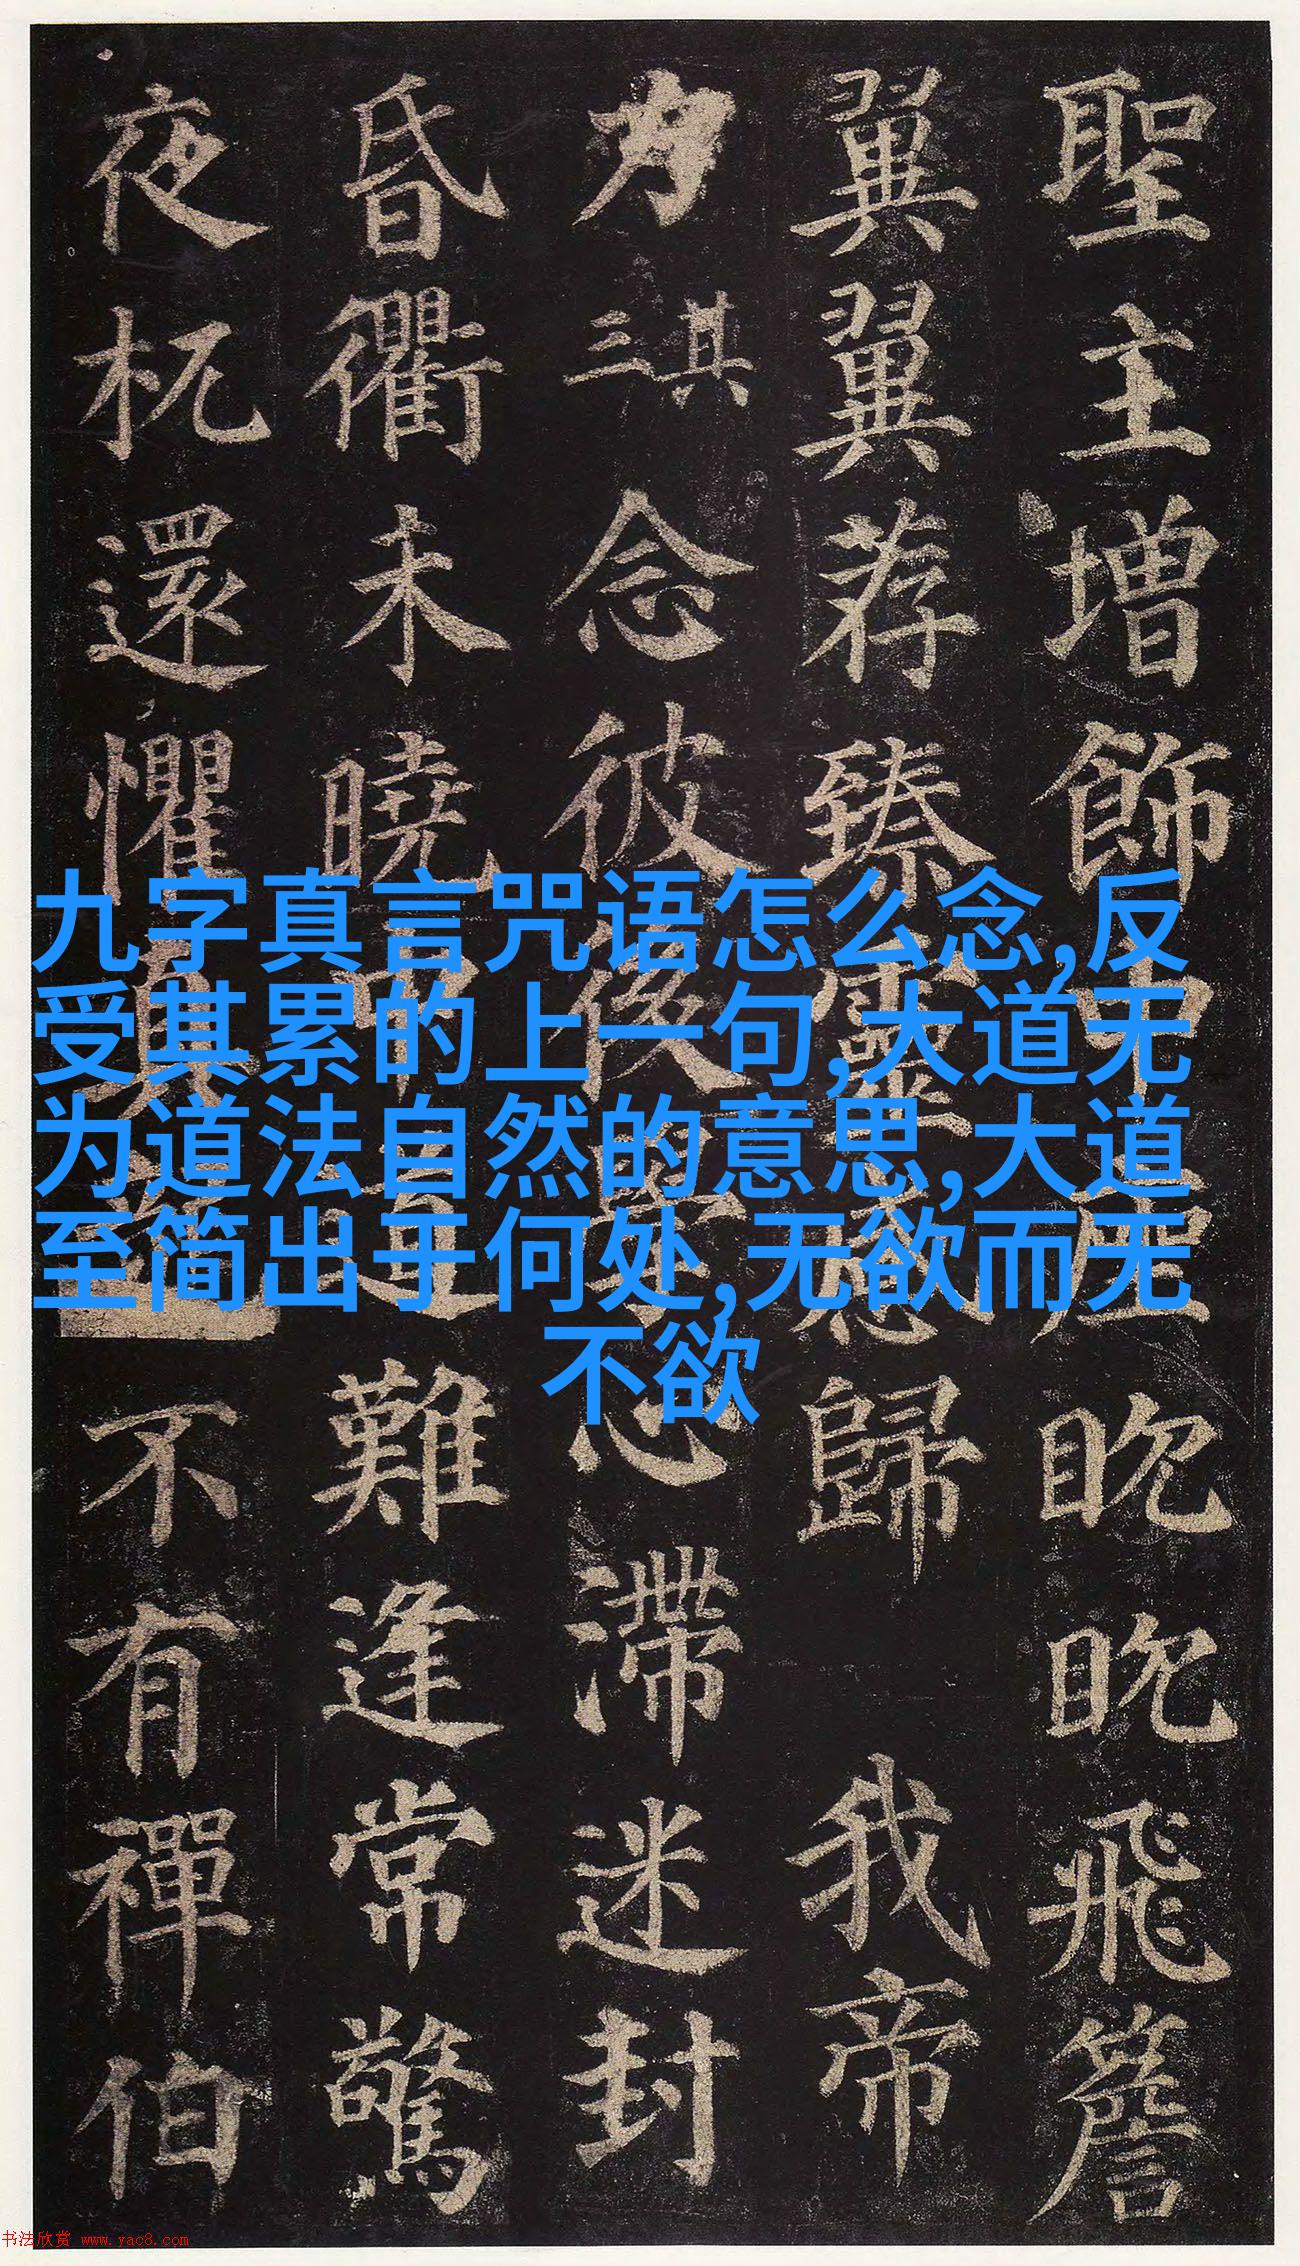 聖主增飾中座眈眈飛簷
翼翼荐臻靈感歸我帝
力其三念彼後學心滯迷封
昏衢未曉中道難逢常驚
夜杌還懼真龍不有禪伯
九字真言咒语怎么念,反
受其累的上一句,大道无
为道法自然的意思,大道
至简出于何处,无欲而无
不欲
书法欣赏 www.yac8.com